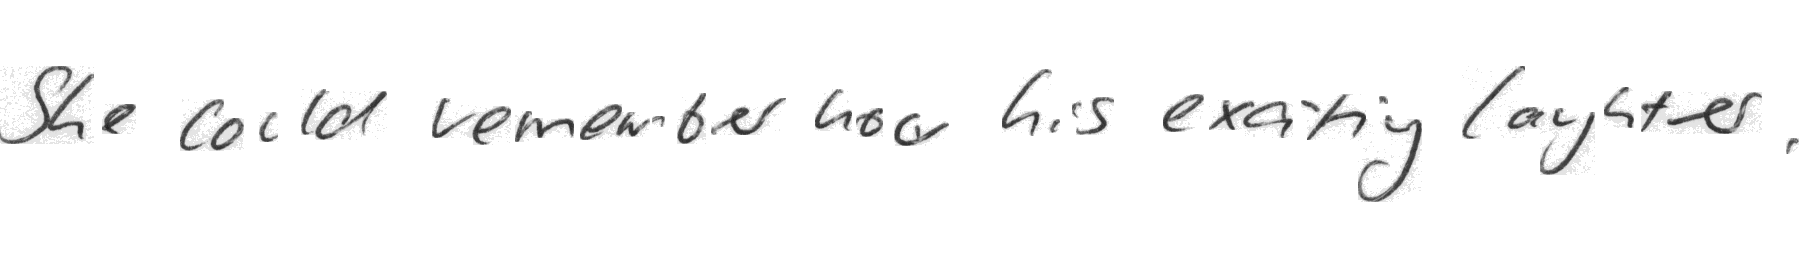 She could remember how his exciting laughter.